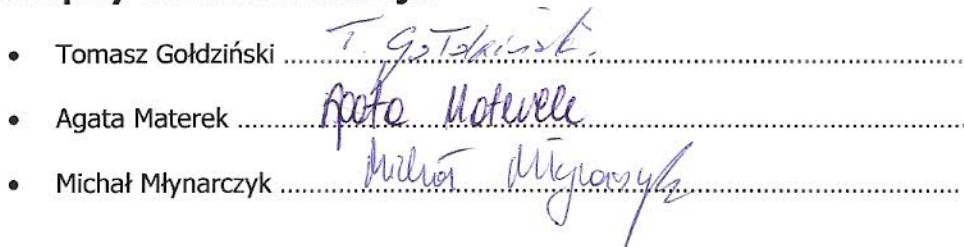 Tomasz Gołdziński ........ T. Gołdziński.
Agata Materek ........ Agata Materek
Michał Młynarczyk ........ Michał Młynarczyk